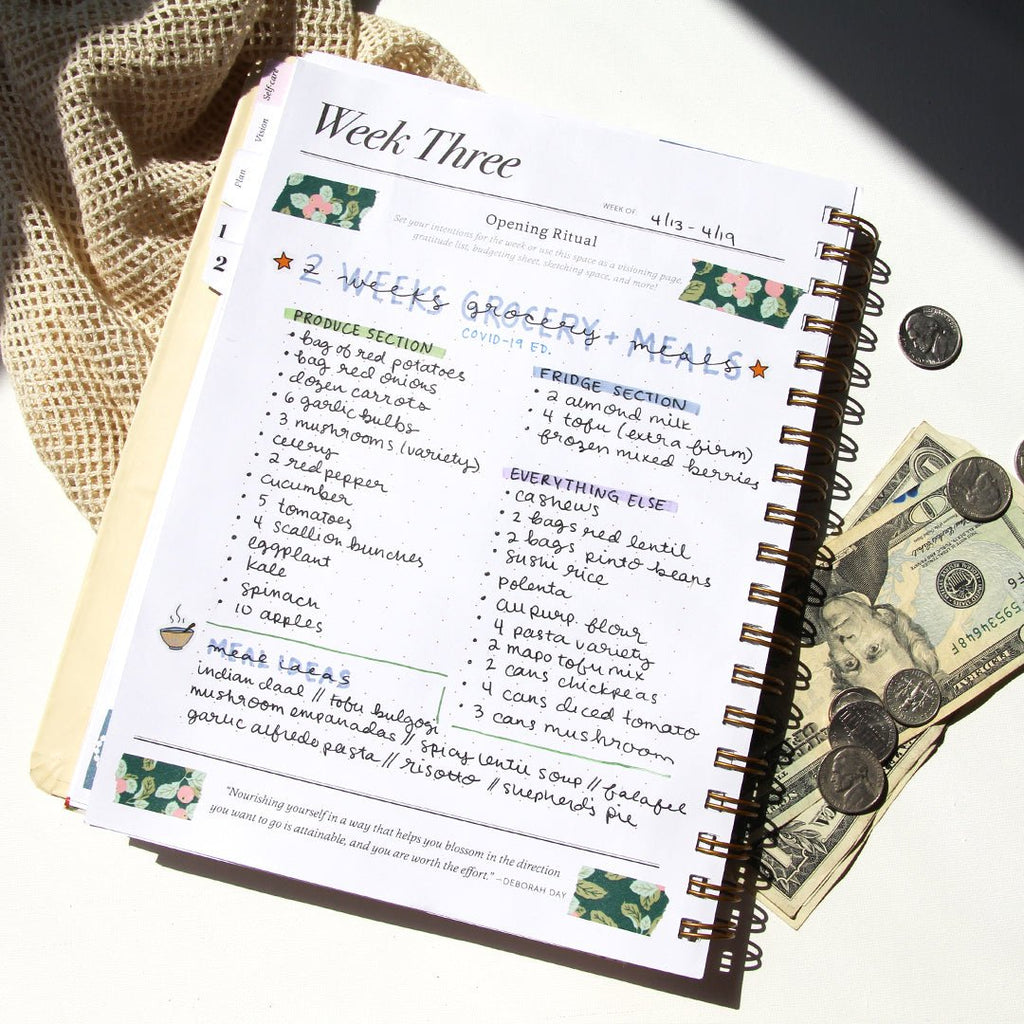 Self-care
Vision
Plan
1
2
Week Three
WEEK OF: 4/13 - 4/19
Opening Ritual
Set your intentions for the week or use this space as a visioning page,
gratitude list, budgeting sheet, sketching space, and more!
2 WEEKS GROCERY + MEALS
2 weeks grocery meals
COVID-19 ED.
PRODUCE SECTION
• bag of red potatoes
• bag red onions
• dozen carrots
• 6 garlic bulbs
• 3 mushrooms (variety)
• celery
• 2 red pepper
• cucumber
• 5 tomatoes
• 4 scallion bunches
• eggplant
• kale
• spinach
• 10 apples
FRIDGE SECTION
• 2 almond milk
• 4 tofu (extra firm)
• frozen mixed berries
EVERYTHING ELSE
• cashews
• 2 bags red lentil
• 2 bags pinto beans
• sushi rice
• polenta
• all purp. flour
• 4 pasta variety
• 2 mapo tofu mix
• 2 cans chickpeas
• 4 cans diced tomato
• 3 cans mushroom
MEAL IDEAS
meal ideas
indian daal // tofu bulgogi
mushroom empanadas // spicy lentil soup // falafel
garlic alfredo pasta // risotto // shepherd's pie
"Nourishing yourself in a way that helps you blossom in the direction
you want to go is attainable, and you are worth the effort." —DEBORAH DAY